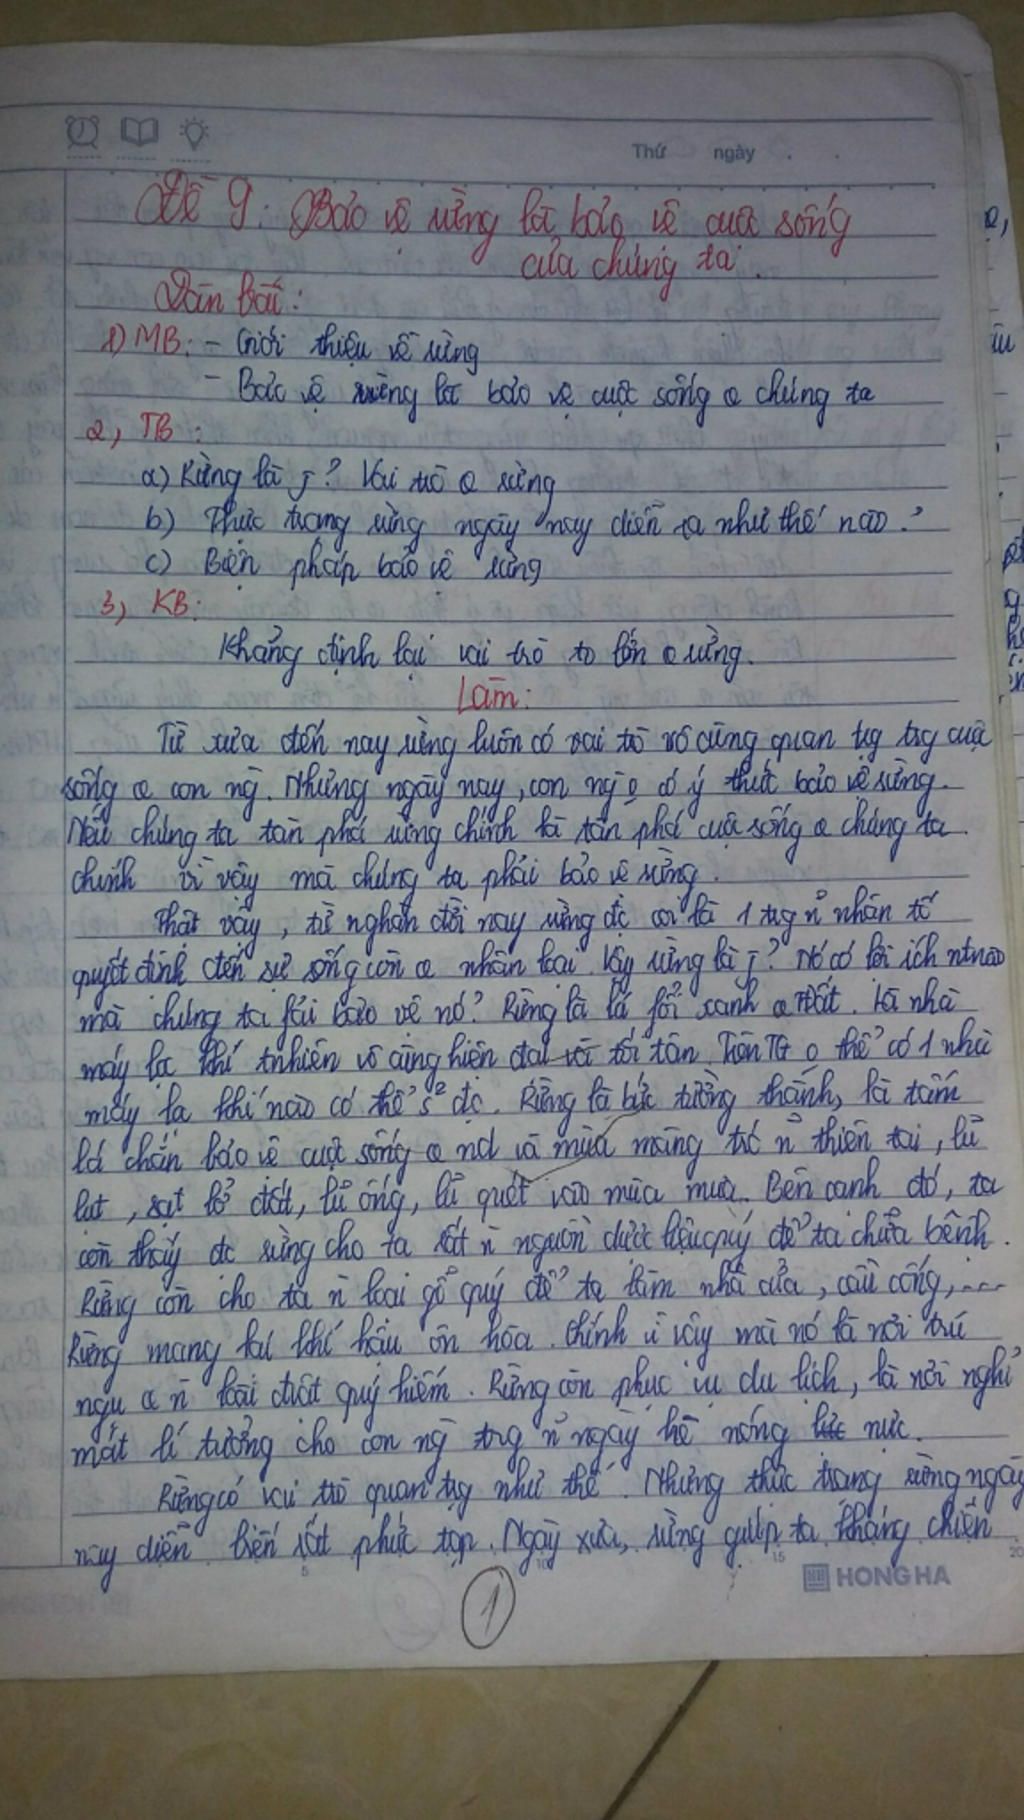 Thứ ngày
Đề 9: Bảo vệ rừng là bảo vệ cuộc sống
của chúng ta.
Dàn bài:
1) MB: - Giới thiệu về rừng
- Bảo vệ rừng là bảo vệ cuộc sống @ chúng ta
2, TB:
a) Rừng là j? Vai trò @ rừng
b) Thực trạng rừng ngày nay diễn ra như thế nào?
c) Biện pháp bảo vệ rừng
3, KB:
Khẳng định lại vai trò to lớn @ rừng.
Làm:
Từ xưa đến nay rừng luôn có vai trò vô cùng quan tṛg trg cuộc
sống @ con ng̀. Nhưng ngày nay, con ng̀ o có ý thức bảo vệ rừng.
Nếu chúng ta tàn phá rừng chính là tàn phá cuộc sống @ chúng ta
chính vì vậy mà chúng ta phải bảo vệ rừng.
Thật vậy, từ nghàn đời nay rừng đc coi là 1 trg n~ nhân tố
quyết định đến sự sống còn @ nhân loại. Vậy rừng là j? Nó có lợi ích ntnào
mà chúng ta fải bảo vệ nó? Rừng là lá fổi xanh @ TĐất. Là nhà
máy lọc khí tnhiên vô cùng hiện đại và tối tân. Trên TG o thể có 1 nhà
máy lọc khí nào có thể s² đc. Rừng là bức tường thành, là tấm
lá chắn bảo vệ cuộc sống @ nd và mùa màng trc n~ thiên tai, lũ
lụt, sạt lở đất, lũ ống, lũ quét vào mùa mưa. Bên cạnh đó, ta
còn thấy đc rừng cho ta rất ǹ nguồn dược liệu quý để ta chữa bệnh.
Rừng còn cho ta ǹ loại gỗ quý để ta làm nhà cửa, cầu cống,...
Rừng mang lại khí hậu ôn hòa. Chính vì vậy mà nó là nơi trú
ngụ @ ǹ loài đvật quý hiếm. Rừng còn phục vụ du lịch, là nơi nghỉ
mát lí tưởng cho con ng̀ trg n~ ngày hè nóng nực.
Rừng có vai trò quan tṛg như thế. Nhưng thực trạng rừng ngày
nay diễn biến rất phức tạp. Ngày xưa, rừng giúp ta kháng chiến
5 10 15 20
HONG HA
1